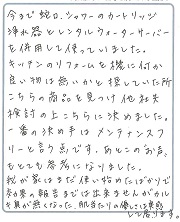 今まで蛇口、シャワーのカートリッジ
浄水器とレンタルウォーターサーバー
を併用して使っていました。
キッチンのリフォームを機に何か
良い物は無いかと探していた所
こちらの商品を見つけ他社と
検討の上こちらに決めました。
一番の決め手はメンテナンスフ
リーと言う点です。あとこのお声、
もとても参考になりました。
我が家はまだ使い始めたばかりで
効果の報告までは出来ませんがカルキ
臭が無くなった、肌当たりの優しさは実感
して居ります。